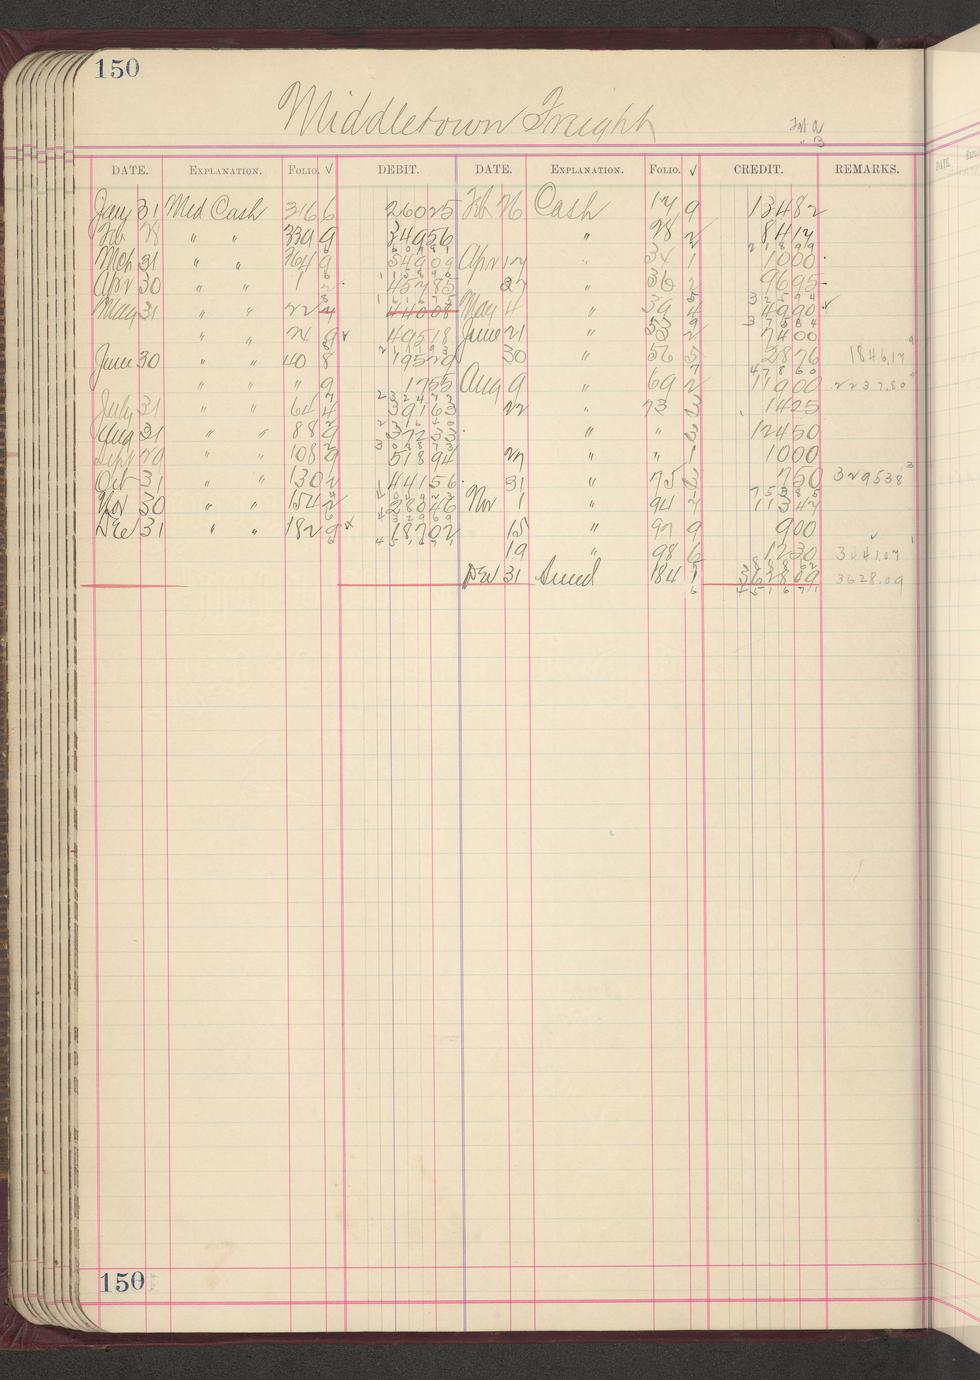 150
Middletown Freight
DATE. EXPLANATION. FOLIO. √ DEBIT. DATE. EXPLANATION. FOLIO. √ CREDIT. REMARKS.
Jany 31 Med Cash 316 6 26025 Feb 26 Cash 17 9 13482
Feb 28 " " 339 9 34956 " 28 2 8417
Mch 31 " " 364 9 54909 Apr 17 " 34 1 1000
Apr 30 " " 1 2 45785 27 " 36 2 9695
May 31 " " 22 4 44008 May 4 " 39 4 4990
" " 24 9 40518 June 21 " 53 2 7400
June 30 " " 40 8 19529 30 " 56 5 2876 1846.17
" " " 9 1755 Aug 9 " 69 2 11900 2237.80
July 31 " " 64 4 39163 22 " 73 3 1425
Aug 31 " " 88 9 37233 " " 3 12450
Sept 29 " " 108 9 51894 27 " " 1 1000
Oct 31 " " 130 2 44156 31 " 75 3 750 329538
Nov 30 " " 154 2 28046 Nov 1 " 94 4 11347
Dec 31 " " 182 9 18702 15 " 97 9 900
19 " 98 6 1230 3441.07
Dec 31 184 1 362809 3628.09
451671 451671
150